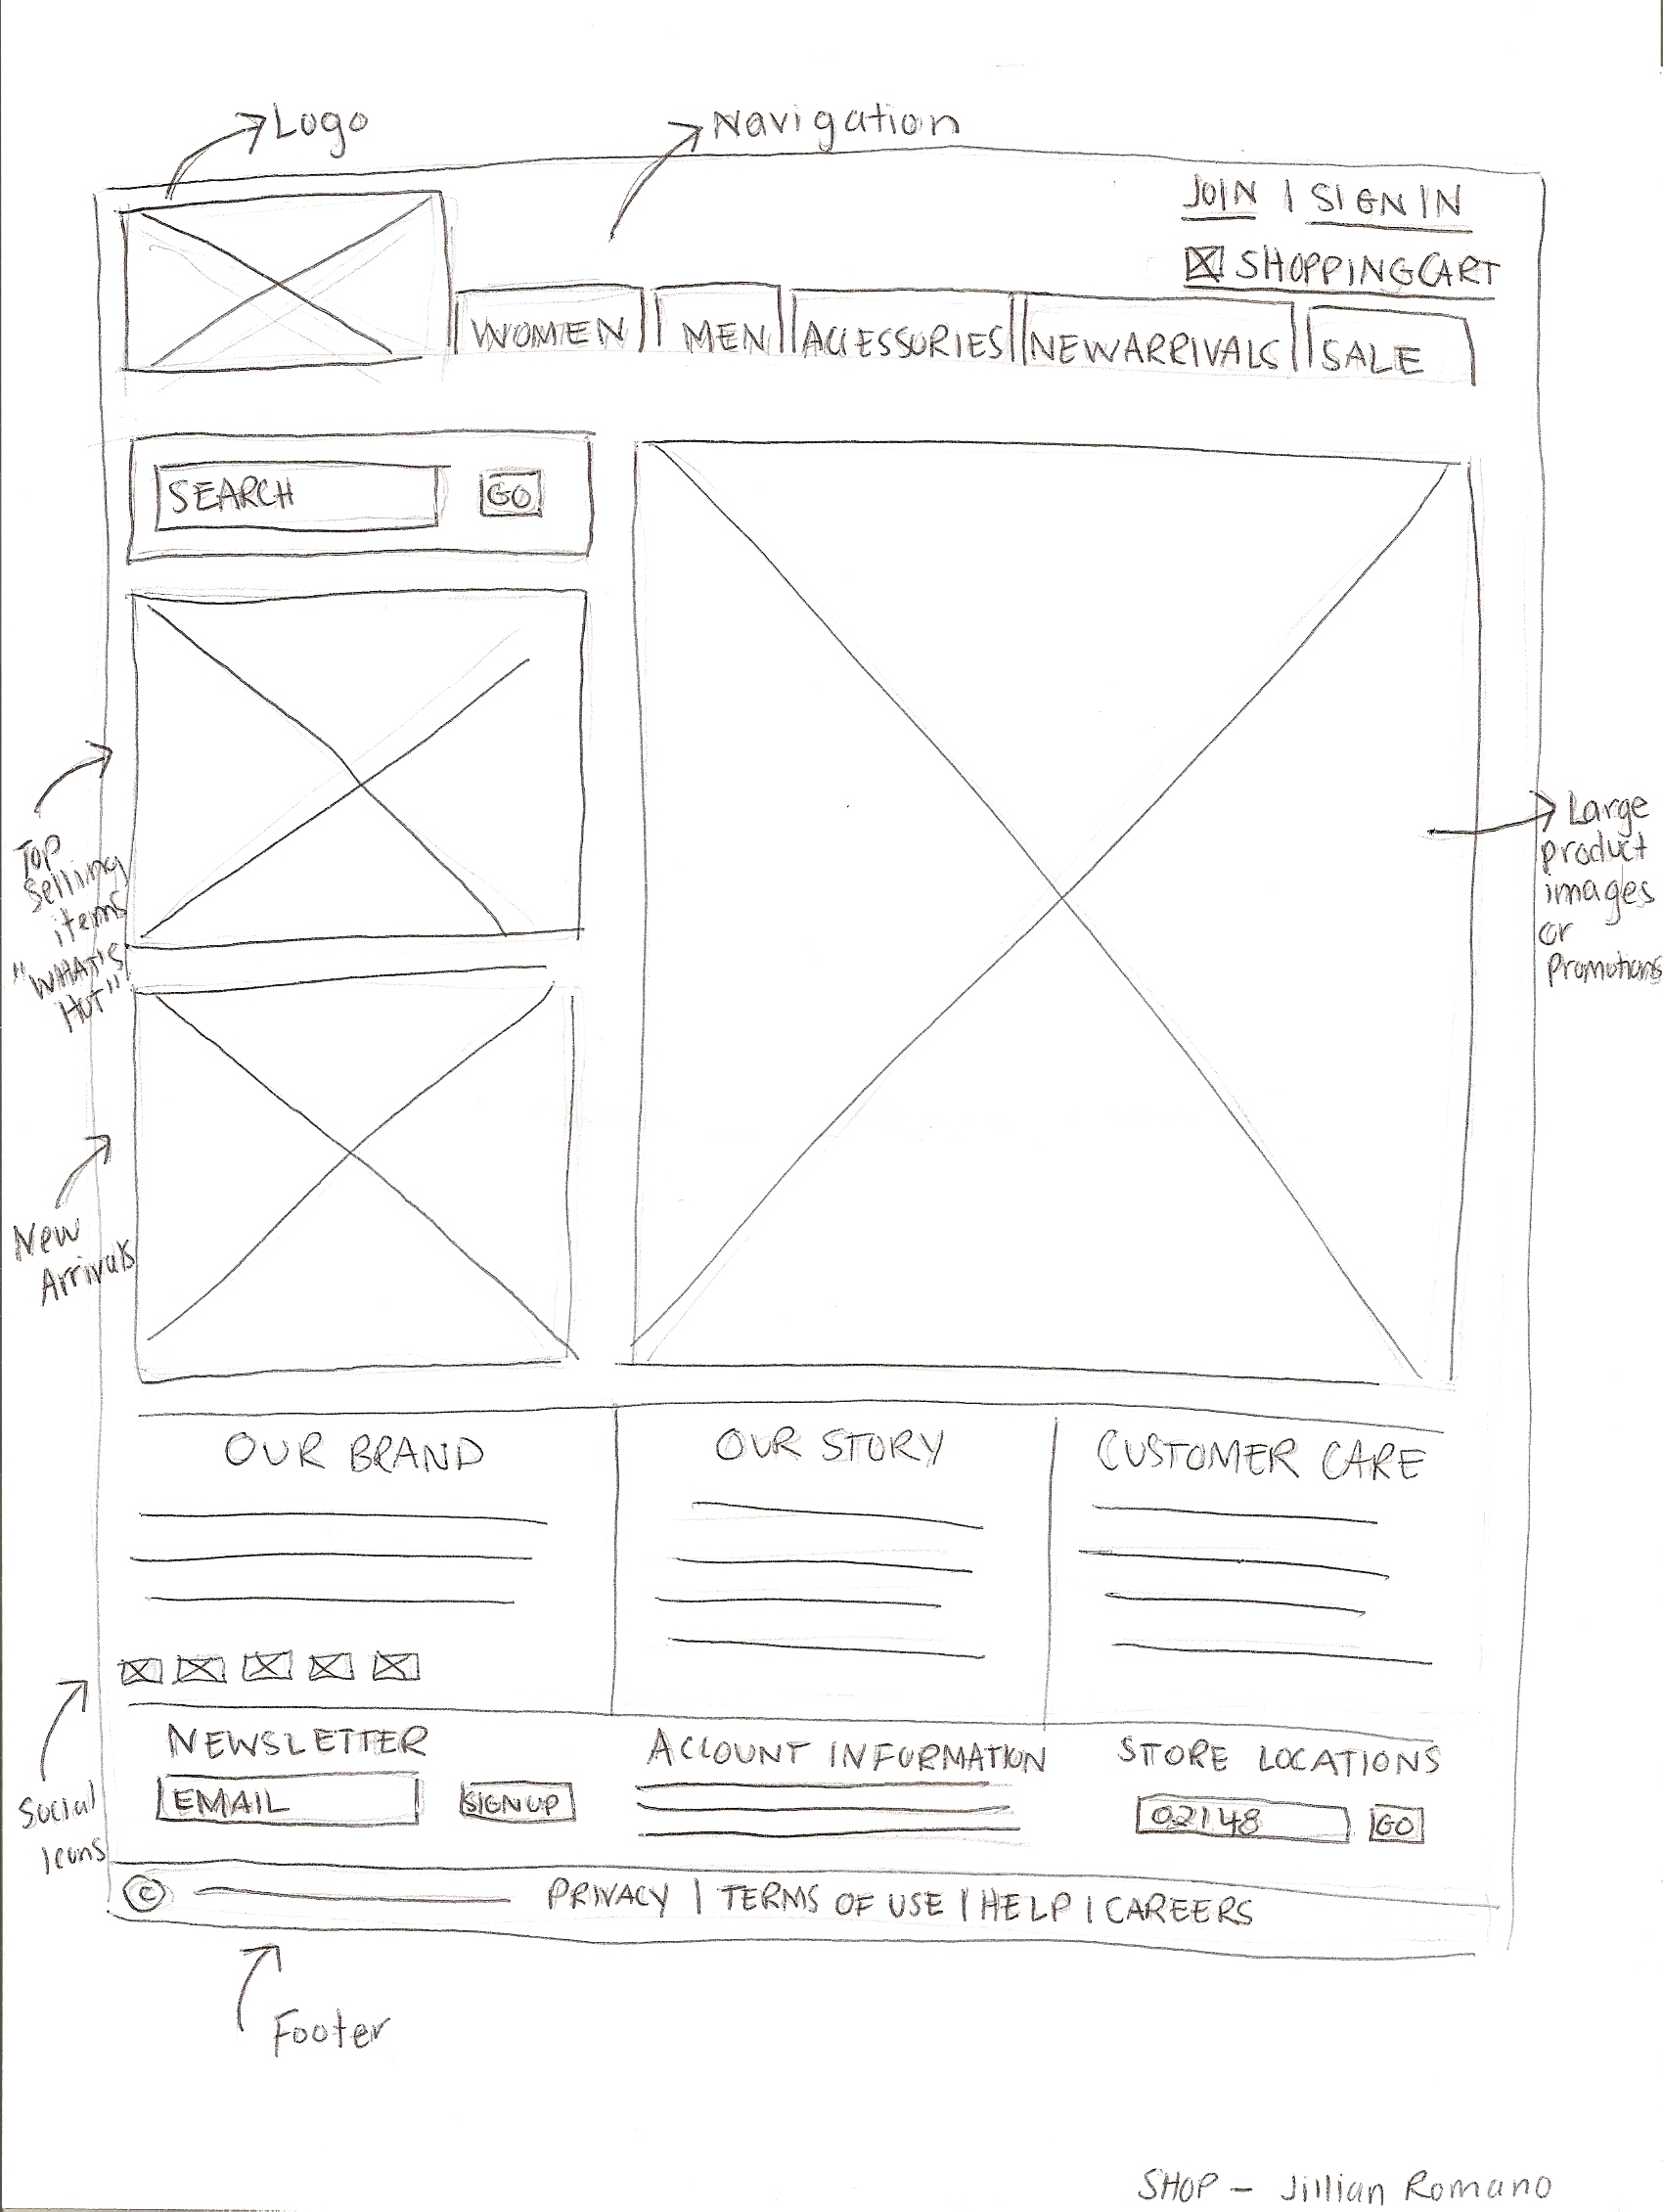 Logo
Navigation
JOIN | SIGN IN
SHOPPING CART
WOMEN
MEN
ACCESSORIES
NEW ARRIVALS
SALE
SEARCH
GO
Top
Selling
items
"WHAT'S
HOT"
Large
product
images
or
promotions
New
Arrivals
OUR BRAND
OUR STORY
CUSTOMER CARE
Social
Icons
NEWSLETTER
EMAIL
SIGN UP
ACCOUNT INFORMATION
STORE LOCATIONS
02148
GO
© PRIVACY | TERMS OF USE | HELP | CAREERS
Footer
SHOP – Jillian Romano